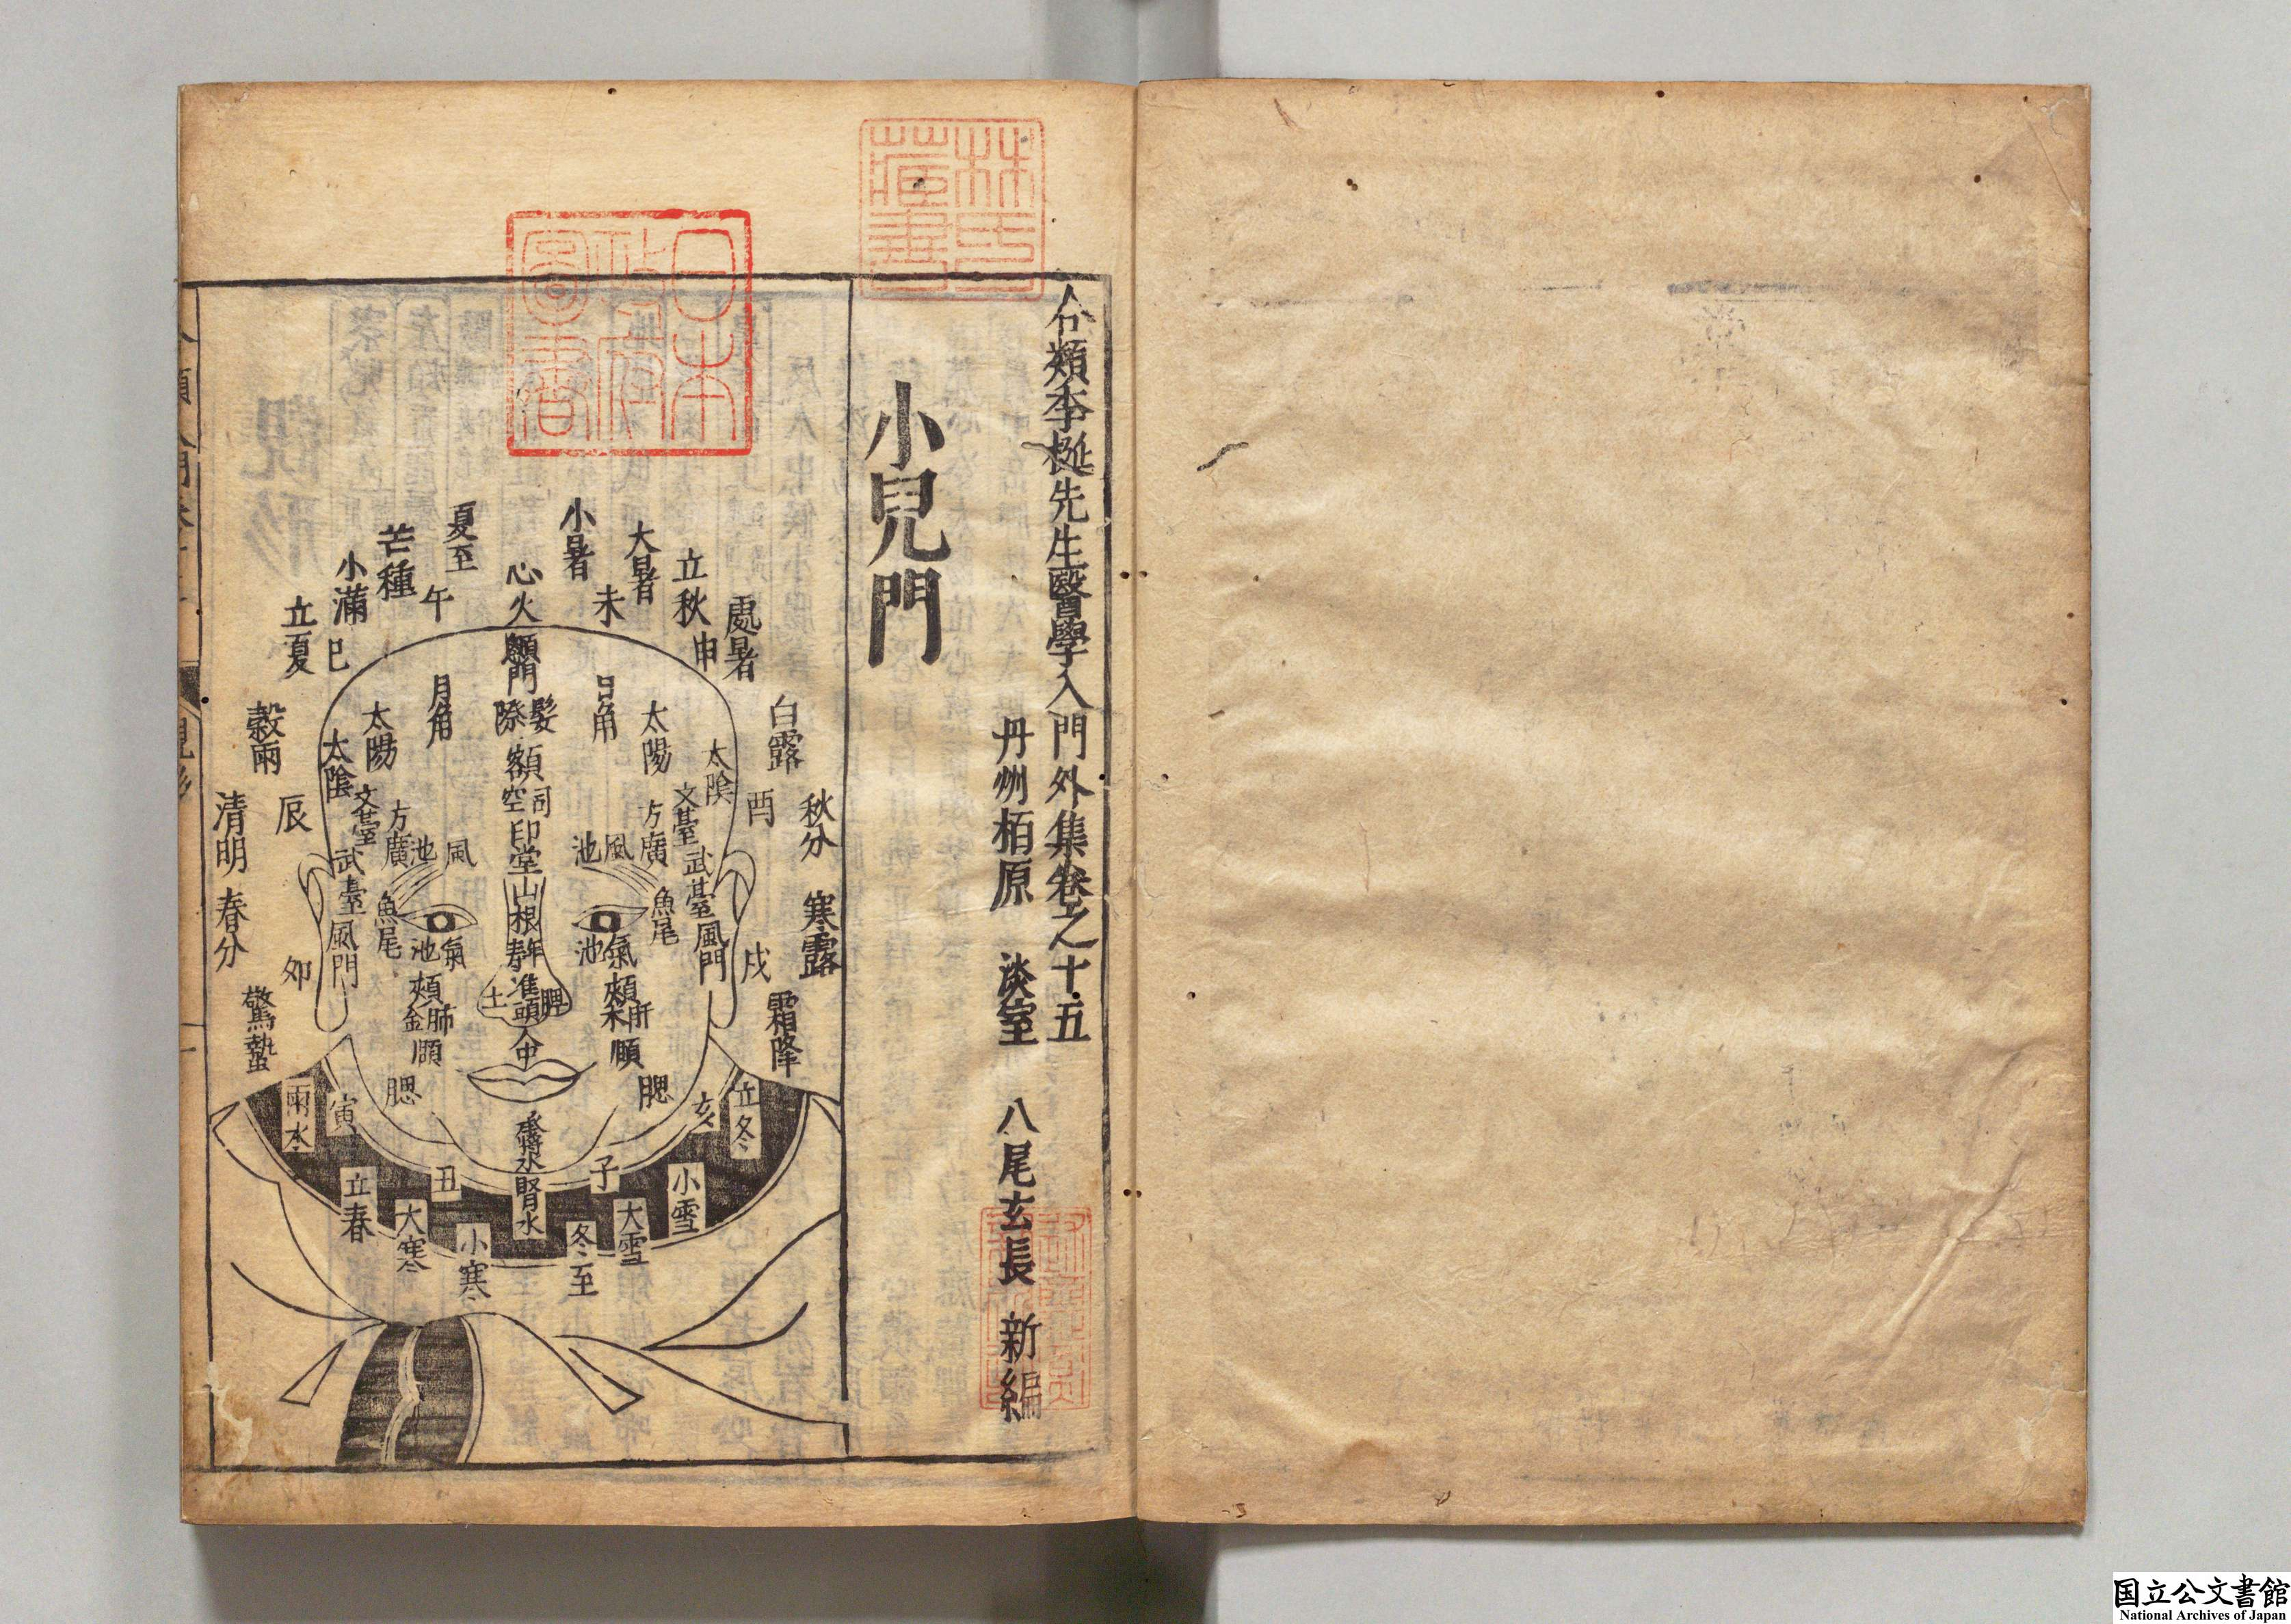 合類李梴先生醫學入門外集卷之十五
丹州栢原 淡室 八尾玄長 新編
小兒門
林氏藏書
日本政府圖書
處暑
立秋
申
大暑
未
小暑
心火
夏至
午
芒種
小滿
立夏
巳
穀雨
辰
清明
春分
卯
驚蟄
雨水
寅
立春
丑
大寒
小寒
冬至
子
大雪
小雪
立冬
亥
霜降
戌
寒露
秋分
酉
白露
顖門
髮際
額
司空
印堂
山根
年壽
準頭
脾土
人中
承漿水
腎水
日角
太陽
太陰
文臺
武臺
風門
方廣
風池
魚尾
氣池
頰
肝木
頤
腮
月角
太陽
太陰
文臺
武臺
風門
方廣
風池
魚尾
氣池
頰
肺金
頤
腮
国立公文書館
National Archives of Japan